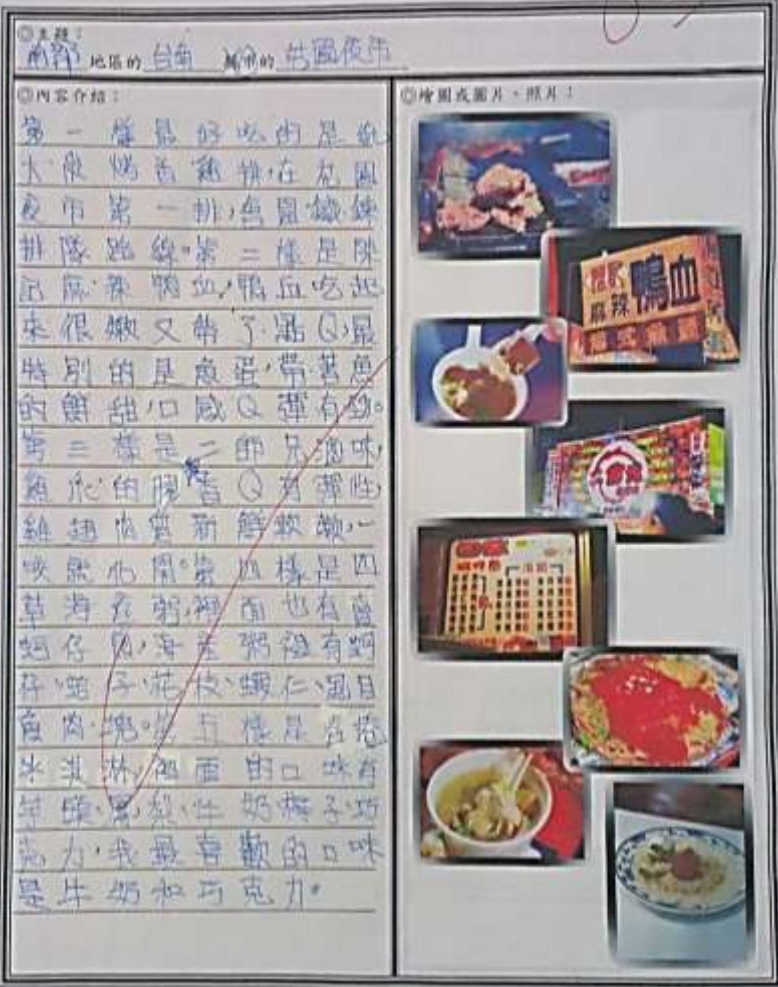 ◎主題：
南部 地區的 台南 的 花園夜市
◎內容介紹：
第一樣最好吃的是
火 烤香雞排，在花園
夜市第一排，
排隊路線。第二樣是
記麻辣鴨血，鴨血吃起
來很嫩又帶了點Q，最
特別的是魚蛋，帶著魚
的鮮甜，口感Q彈有勁。
第三樣是二師兄滷味，
的 Q有彈性，
雞翅 新鮮軟嫩，一
咬就化開。第四樣是四
草海產粥，裡面也有賣
蚵仔 ，海產粥裡有蚵
仔、蛤子、花枝、蝦仁、虱目
魚肉塊。第五樣是
冰淇淋，裡面的口味有
芋頭、鳳梨、牛奶、椰子、巧
克力，我最喜歡的口味
是牛奶和巧克力。
◎繪圖或圖片、照片：
麻辣鴨血